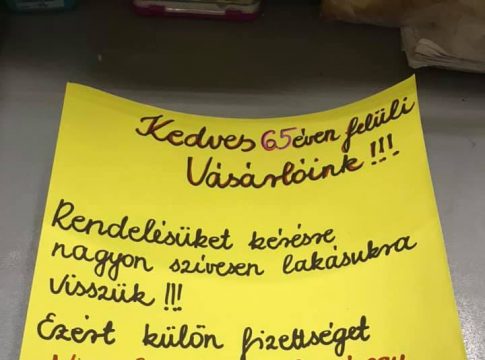 Kedves 65 éven felüli
Vásárlóink !!!
Rendelésüket kérésre
nagyon szívesen lakásukra
visszük !!!
Ezért külön fizettséget